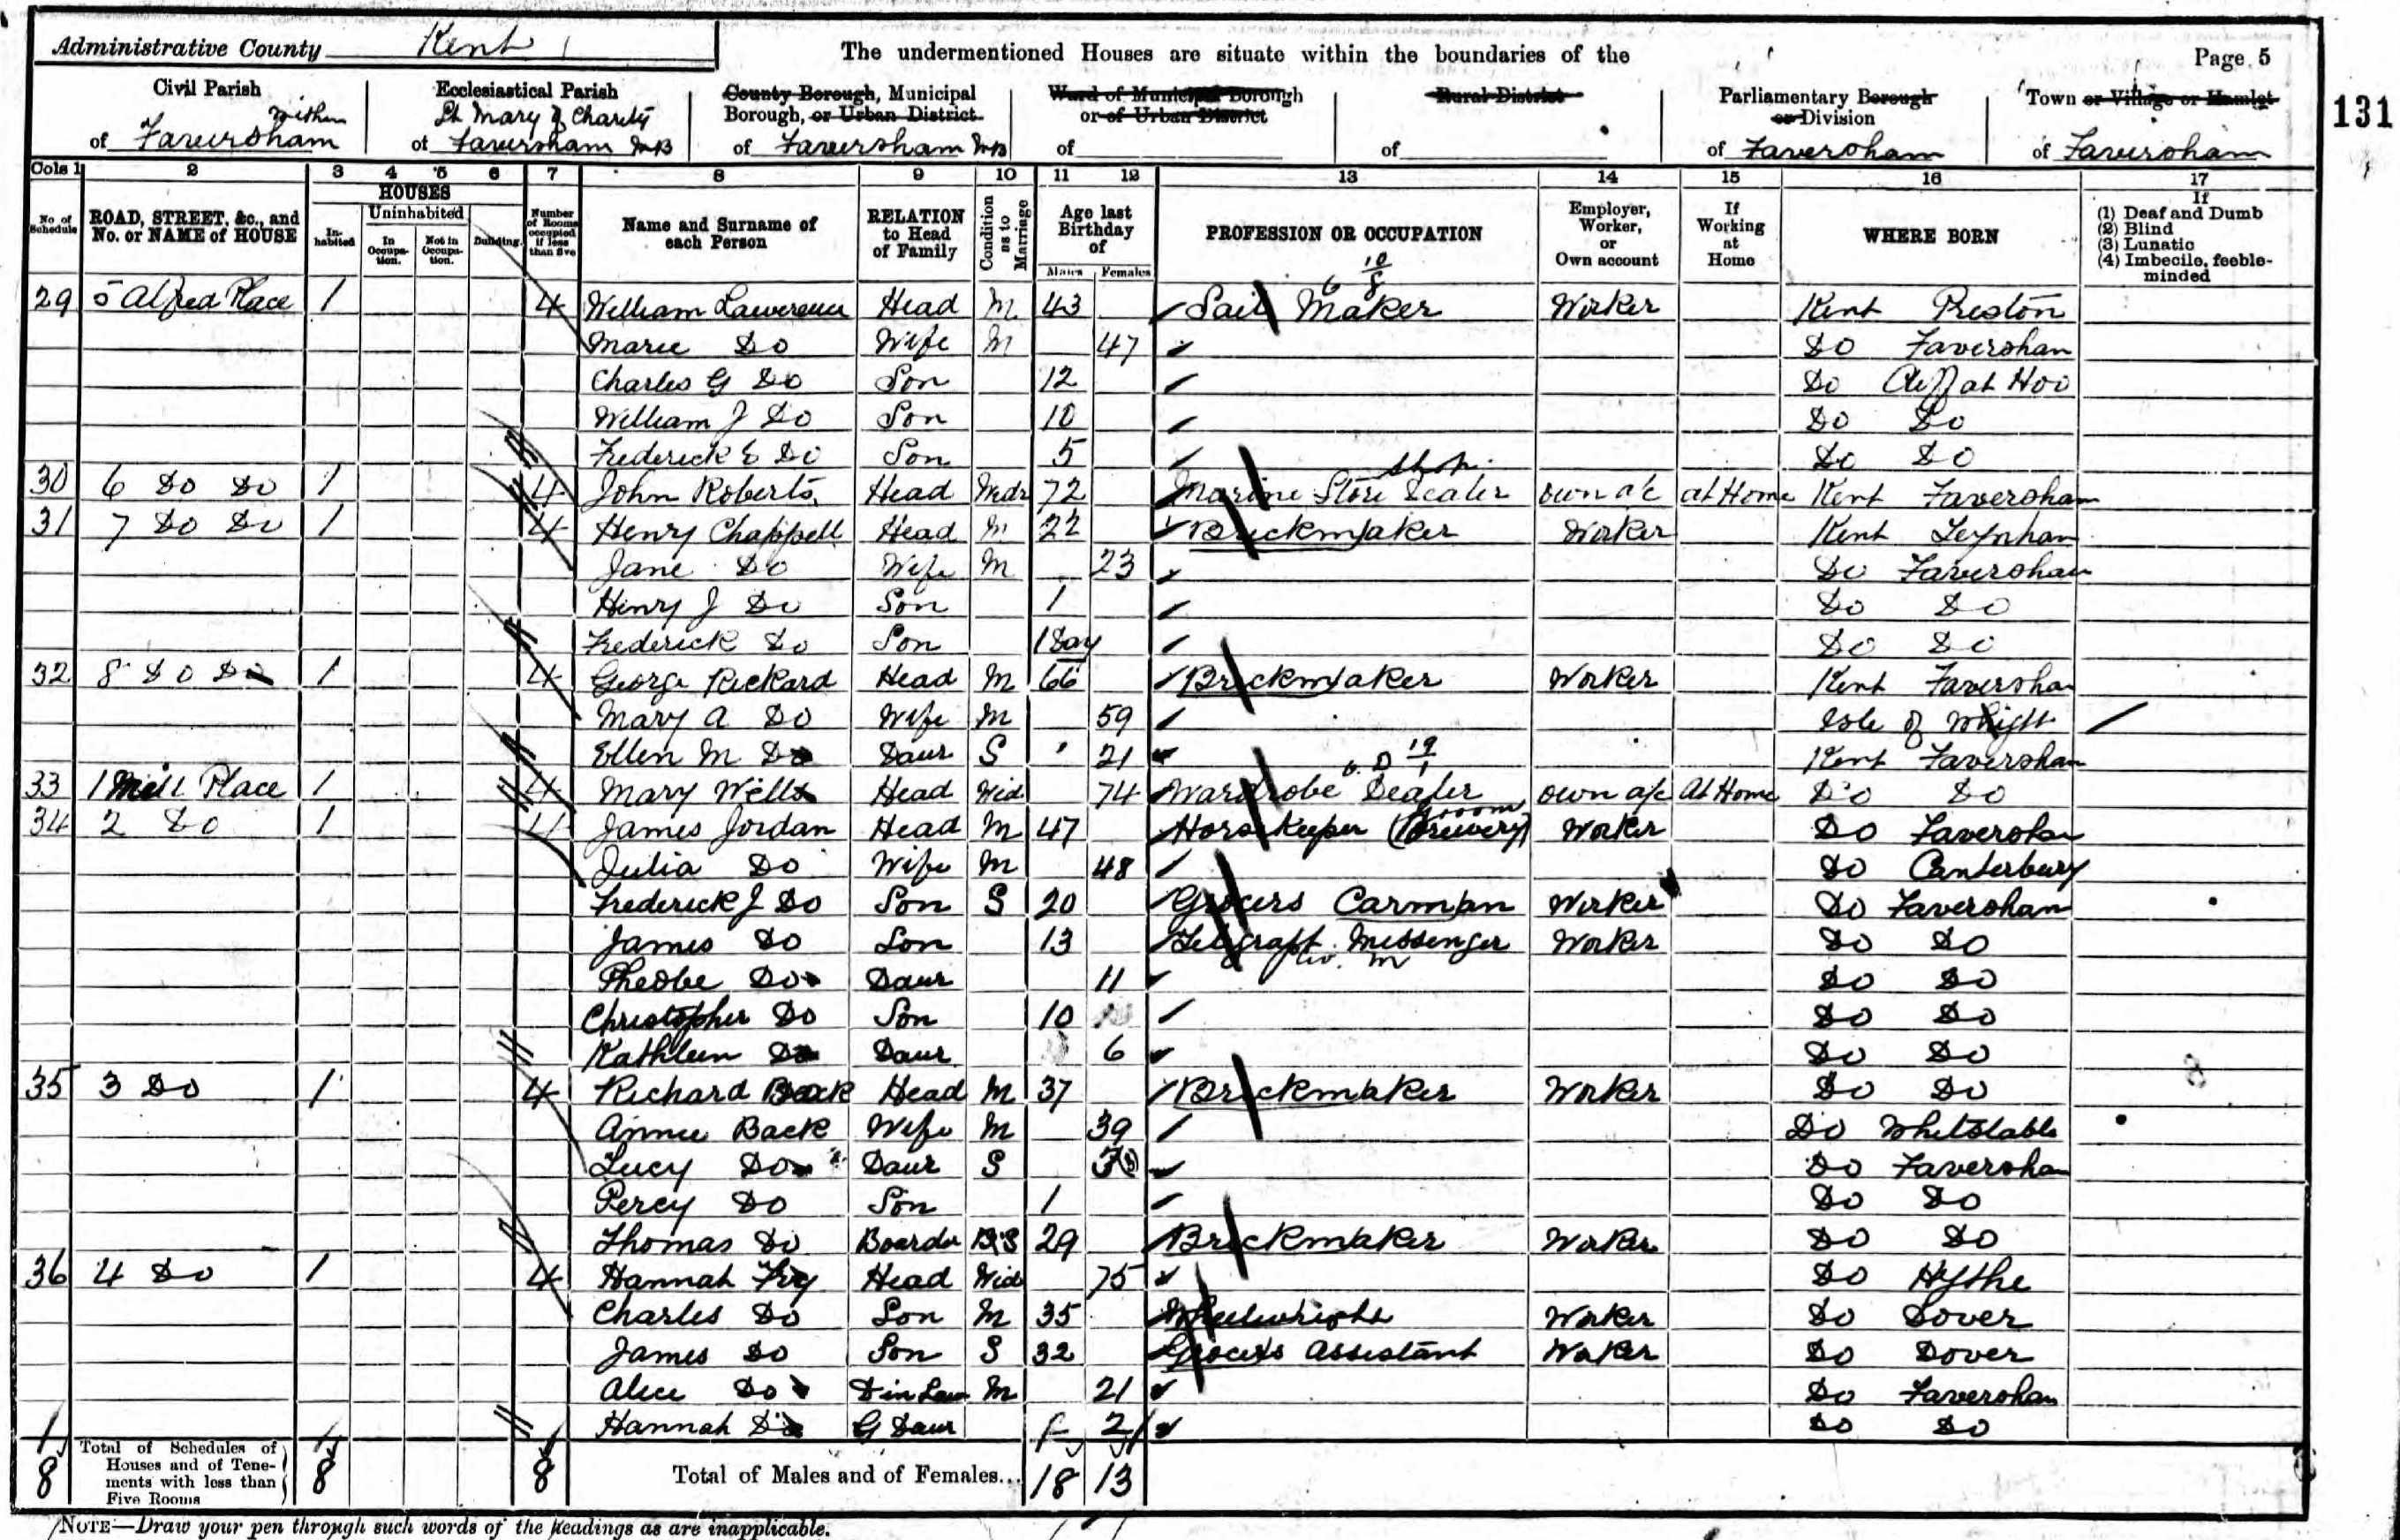 Administrative County Kent
The undermentioned Houses are situate within the boundaries of the
Page 5
131
Civil Parish within of Faversham
Ecclesiastical Parish St Mary of Charity of Faversham MB
County Borough, Municipal Borough, or Urban District of Faversham MB
Ward of Municipal Borough or of Urban District of
Rural District of
Parliamentary Borough or Division of Faversham
Town or Village or Hamlet of Faversham
Cols 1 2 3 4 5 6 7 8 9 10 11 12 13 14 15 16 17
No. of Schedule
ROAD, STREET, &c., and No. or NAME of HOUSE
HOUSES
In-habited
Uninhabited
In Occupa-tion.
Not in Occupa-tion.
Building.
Number of Rooms occupied if less than five
Name and Surname of each Person
RELATION to Head of Family
Condition as to Marriage
Age last Birthday of
Males Females
PROFESSION OR OCCUPATION
Employer, Worker, or Own account
If Working at Home
WHERE BORN
If
(1) Deaf and Dumb
(2) Blind
(3) Lunatic
(4) Imbecile, feeble-minded
29 5 Alfred Place 1 4 William Lawerence Head M 43 Sail Maker Worker Kent Preston
Marie Do Wife M 47 Do Faversham
Charles G Do Son 12 Do Cliff at Hoo
William J Do Son 10 Do Do
Frederick E Do Son 5 Do Do
30 6 Do Do 1 4 John Roberts Head Widr 72 Marine Store Dealer Shop own a/c at Home Kent Faversham
31 7 Do Do 1 4 Henry Chappell Head M 22 Brickmaker Worker Kent Teynham
Jane Do Wife M 23 Do Faversham
Henry J Do Son 1 Do Do
Frederick Do Son 1 Day Do Do
32 8 Do Do 1 4 George Rickard Head M 66 Brickmaker Worker Kent Faversham
Mary A Do Wife M 59 Isle of Whight
Ellen M Do Daur S 21 Kent Faversham
33 1 Mill Place 1 4 Mary Wells Head Wid 74 Wardrobe Dealer own a/c At Home Do Do
34 2 Do 1 4 James Jordan Head M 47 Horse Keeper (Brewery) Groom Worker Do Faversham
Julia Do Wife M 48 Do Canterbury
Frederick J Do Son S 20 Grocers Carman Worker Do Faversham
James Do Son 13 Telegraph Messenger Worker Do Do
Pheobe Do Daur 11 Do Do
Christopher Do Son 10 Do Do
Kathleen Do Daur 6 Do Do
35 3 Do 1 4 Richard Back Head M 37 Brickmaker Worker Do Do
Annie Back Wife M 39 Do Whitstable
Lucy Do Daur S Do Faversham
Percy Do Son 1 Do Do
Thomas Do Boarder S 29 Brickmaker Worker Do Do
36 4 Do 1 4 Hannah Head Wid 75 Do Hythe
Charles Do Son M 35 Wheelwright Worker Do Dover
James Do Son S 32 Grocers Assistant Worker Do Dover
Alice Do D in Law M 21 Do Faversham
Hannah Do G Daur 2 Do Do
8 Total of Schedules of Houses and of Tene-ments with less than Five Rooms 8 8 Total of Males and of Females... 18 13
NOTE—Draw your pen through such words of the headings as are inapplicable.